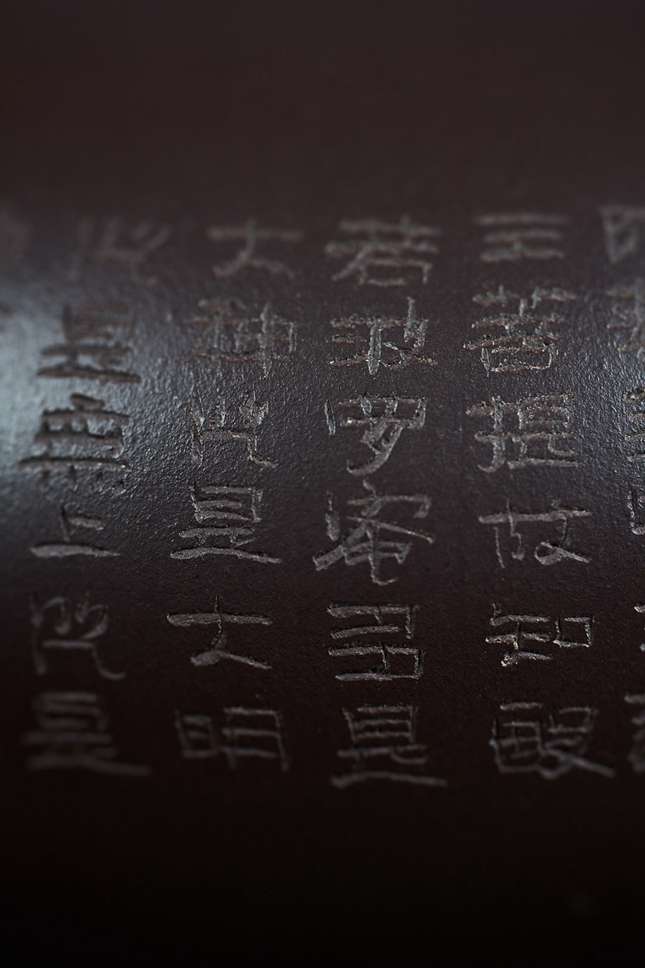 三菩提故知般
若波罗蜜多是
大神咒是大明
咒是無上咒是